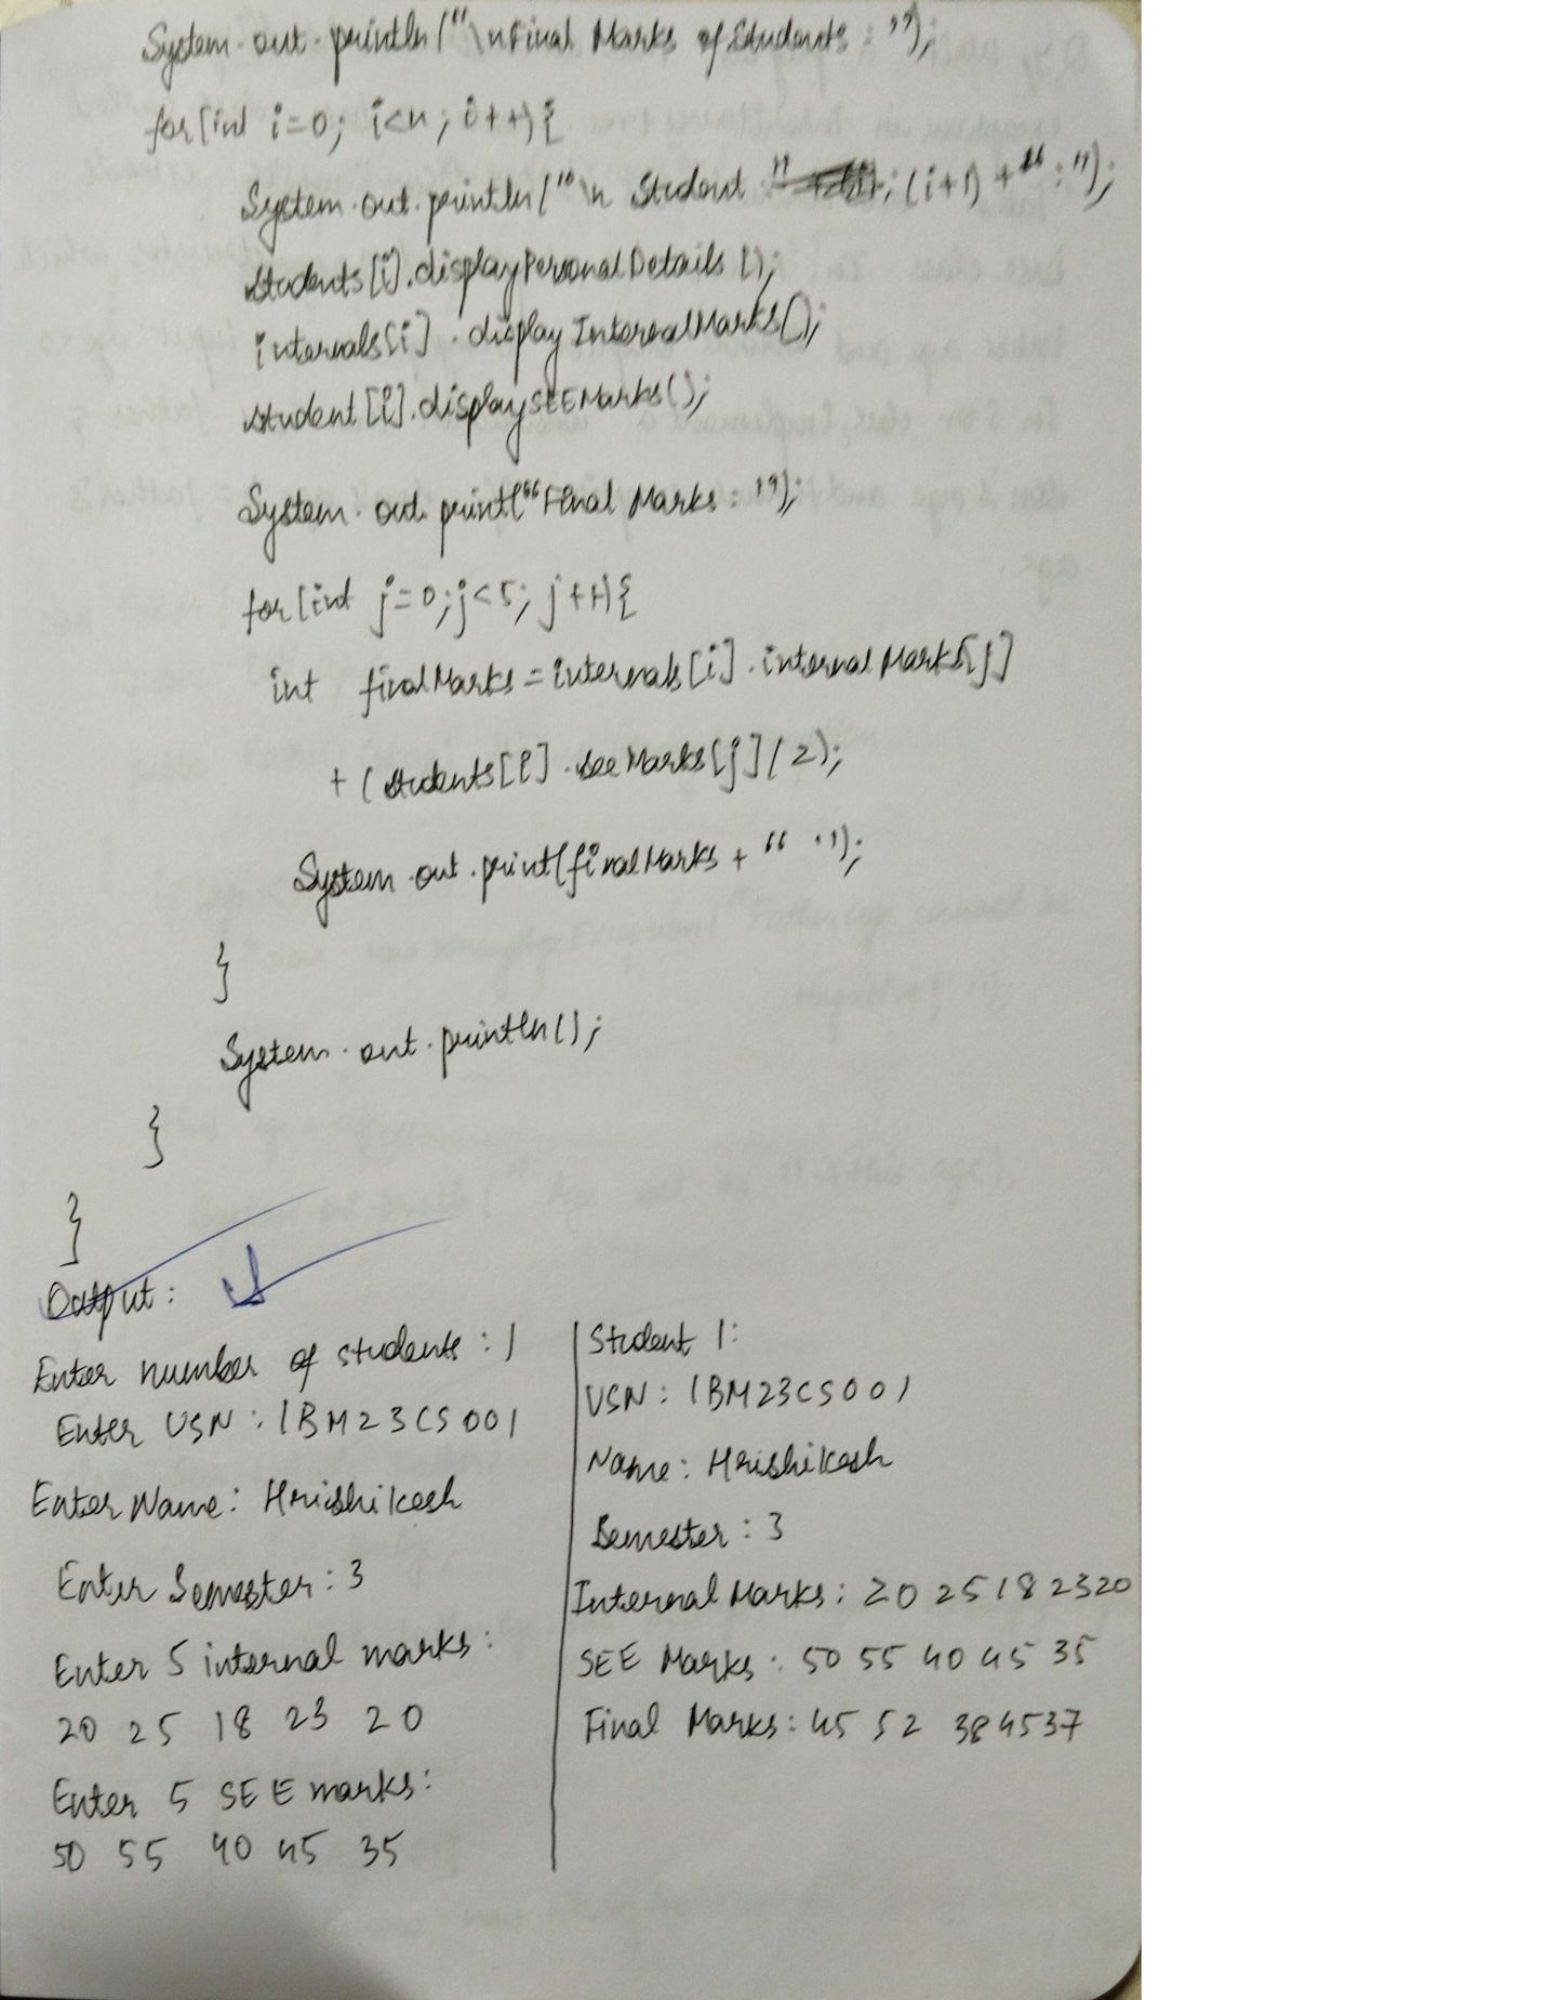 System.out.println("\nFinal Marks of Students : ");
for(int i=0; i<n; i++){
System.out.println("\n Student " (i+1) + " : ");
students[i].displayPersonalDetails();
internals[i].displayInternalMarks();
student[i].displaySEEMarks();
System.out.print("Final Marks : ");
for(int j=0; j<5; j++){
int finalMarks = internals[i].internalMarks[j]
+ (students[i].seeMarks[j]/2);
System.out.print(finalMarks + " ");
}
System.out.println();
}
}
Output :
Enter number of students : 1
Enter USN : 1BM23CS001
Enter Name : Hrishikesh
Enter Semester : 3
Enter 5 internal marks :
20 25 18 23 20
Enter 5 SEE marks :
50 55 40 45 35
Student 1:
USN : 1BM23CS001
Name : Hrishikesh
Semester : 3
Internal Marks : 20 25 18 23 20
SEE Marks : 50 55 40 45 35
Final Marks : 45 52 38 45 37